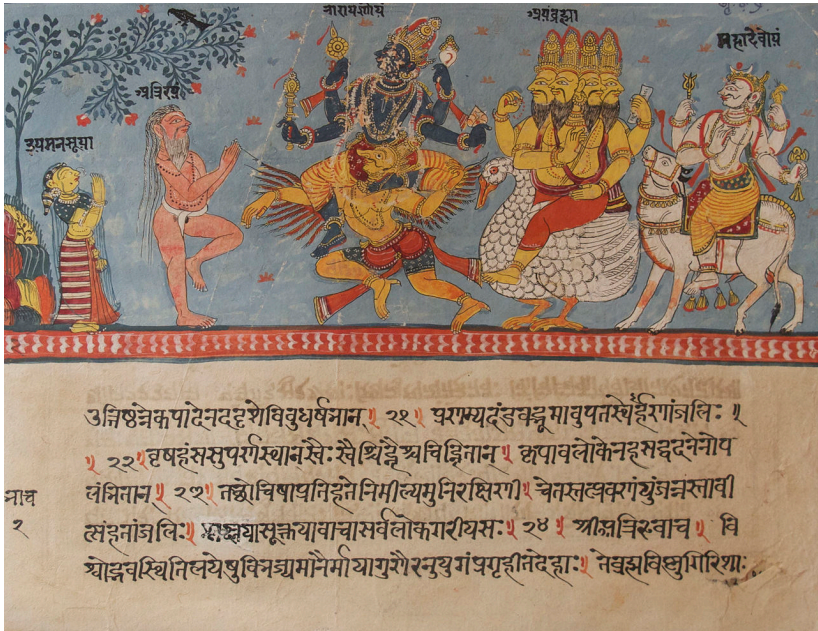 नारायणोयं
अयंब्रह्मा
महादेवोयं
अत्रिरयं
इयमनसूया
उत्तिष्ठन्नेकपादेनददृशेविबुधर्षभान्॥ २१॥ प्रणम्यदंडवद्भूमावुपतस्थेर्हणांजलिः॥
॥ २२॥ वृषहंससुपर्णस्थान्स्वैः स्वैश्चिह्नैश्चचिह्नितान्॥ कृपावलोकेनहसद्वदनेनोप
लंभितान्॥ २३॥ तद्रोचिषाप्रतिहतेनिमील्यमुनिरक्षिणी॥ चेतस्तत्प्रवणंयुंजन्नस्तावी
त्संहतांजलिः॥ श्लक्ष्णयासूक्तयावाचासर्वलोकगरीयसः॥ २४॥ श्रीअत्रिरुवाच॥ वि
श्वोद्भवस्थितिलयेषुविभज्यमानैर्मायागुणैरनुयुगंप्रगृहीतदेहाः॥ तेब्रह्मविष्णुगिरिशाः